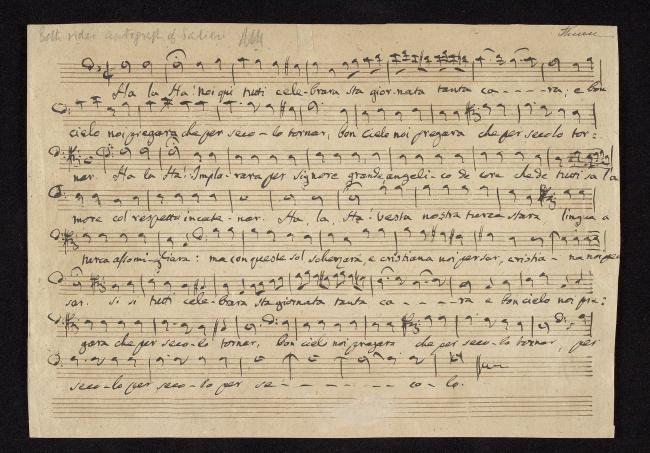 Both sides autograph of Salieri
Ha la Ha! noi qui tutti cele-brara sta gior-nata tanta ca - - - - ra; e bon
cielo noi pregara che per seco-lo tornar, bon cielo noi pregara che per secolo tor=
nar. Ha la Ha! Implo-rara per signore grande angeli-co de core che de tutti sa l'a
more col rispetto incate-nar. Ha, la, Ha! vesta nostra turca stara lingua a
turca assomi-gliara: ma con queste sol scherzara, e cristiana noi pensar, cristia-na noi pen
sar. si si tutti cele-brara sta giornata tanta ca - - - - ra e bon cielo noi pre:
gara che per seco-lo tornar, bon cielo noi pregara che per seco-lo tornar, per
seco-lo per seco-lo per se - - - - - - co - lo.